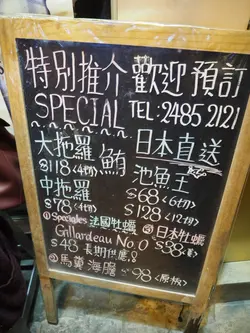 特別推介 歡迎預訂
SPECIAL TEL: 2485 2121
大拖羅 鮪 日本直送
$118(4切) 池魚王
中拖羅 $68(6切)
$78(4切) $128(12切)
① Speciales 法國牡蠣 ③ 日本牡蠣
Gillardeau No.0 $38(隻)
$48 長期供應!
② 馬糞海膽 $98(原板)